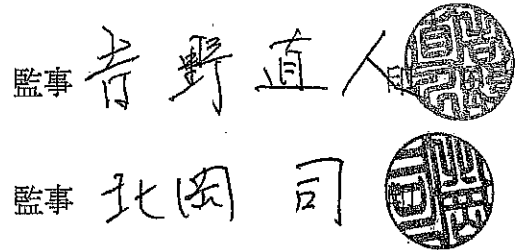 監事 青野直人 印
監事 北岡 司